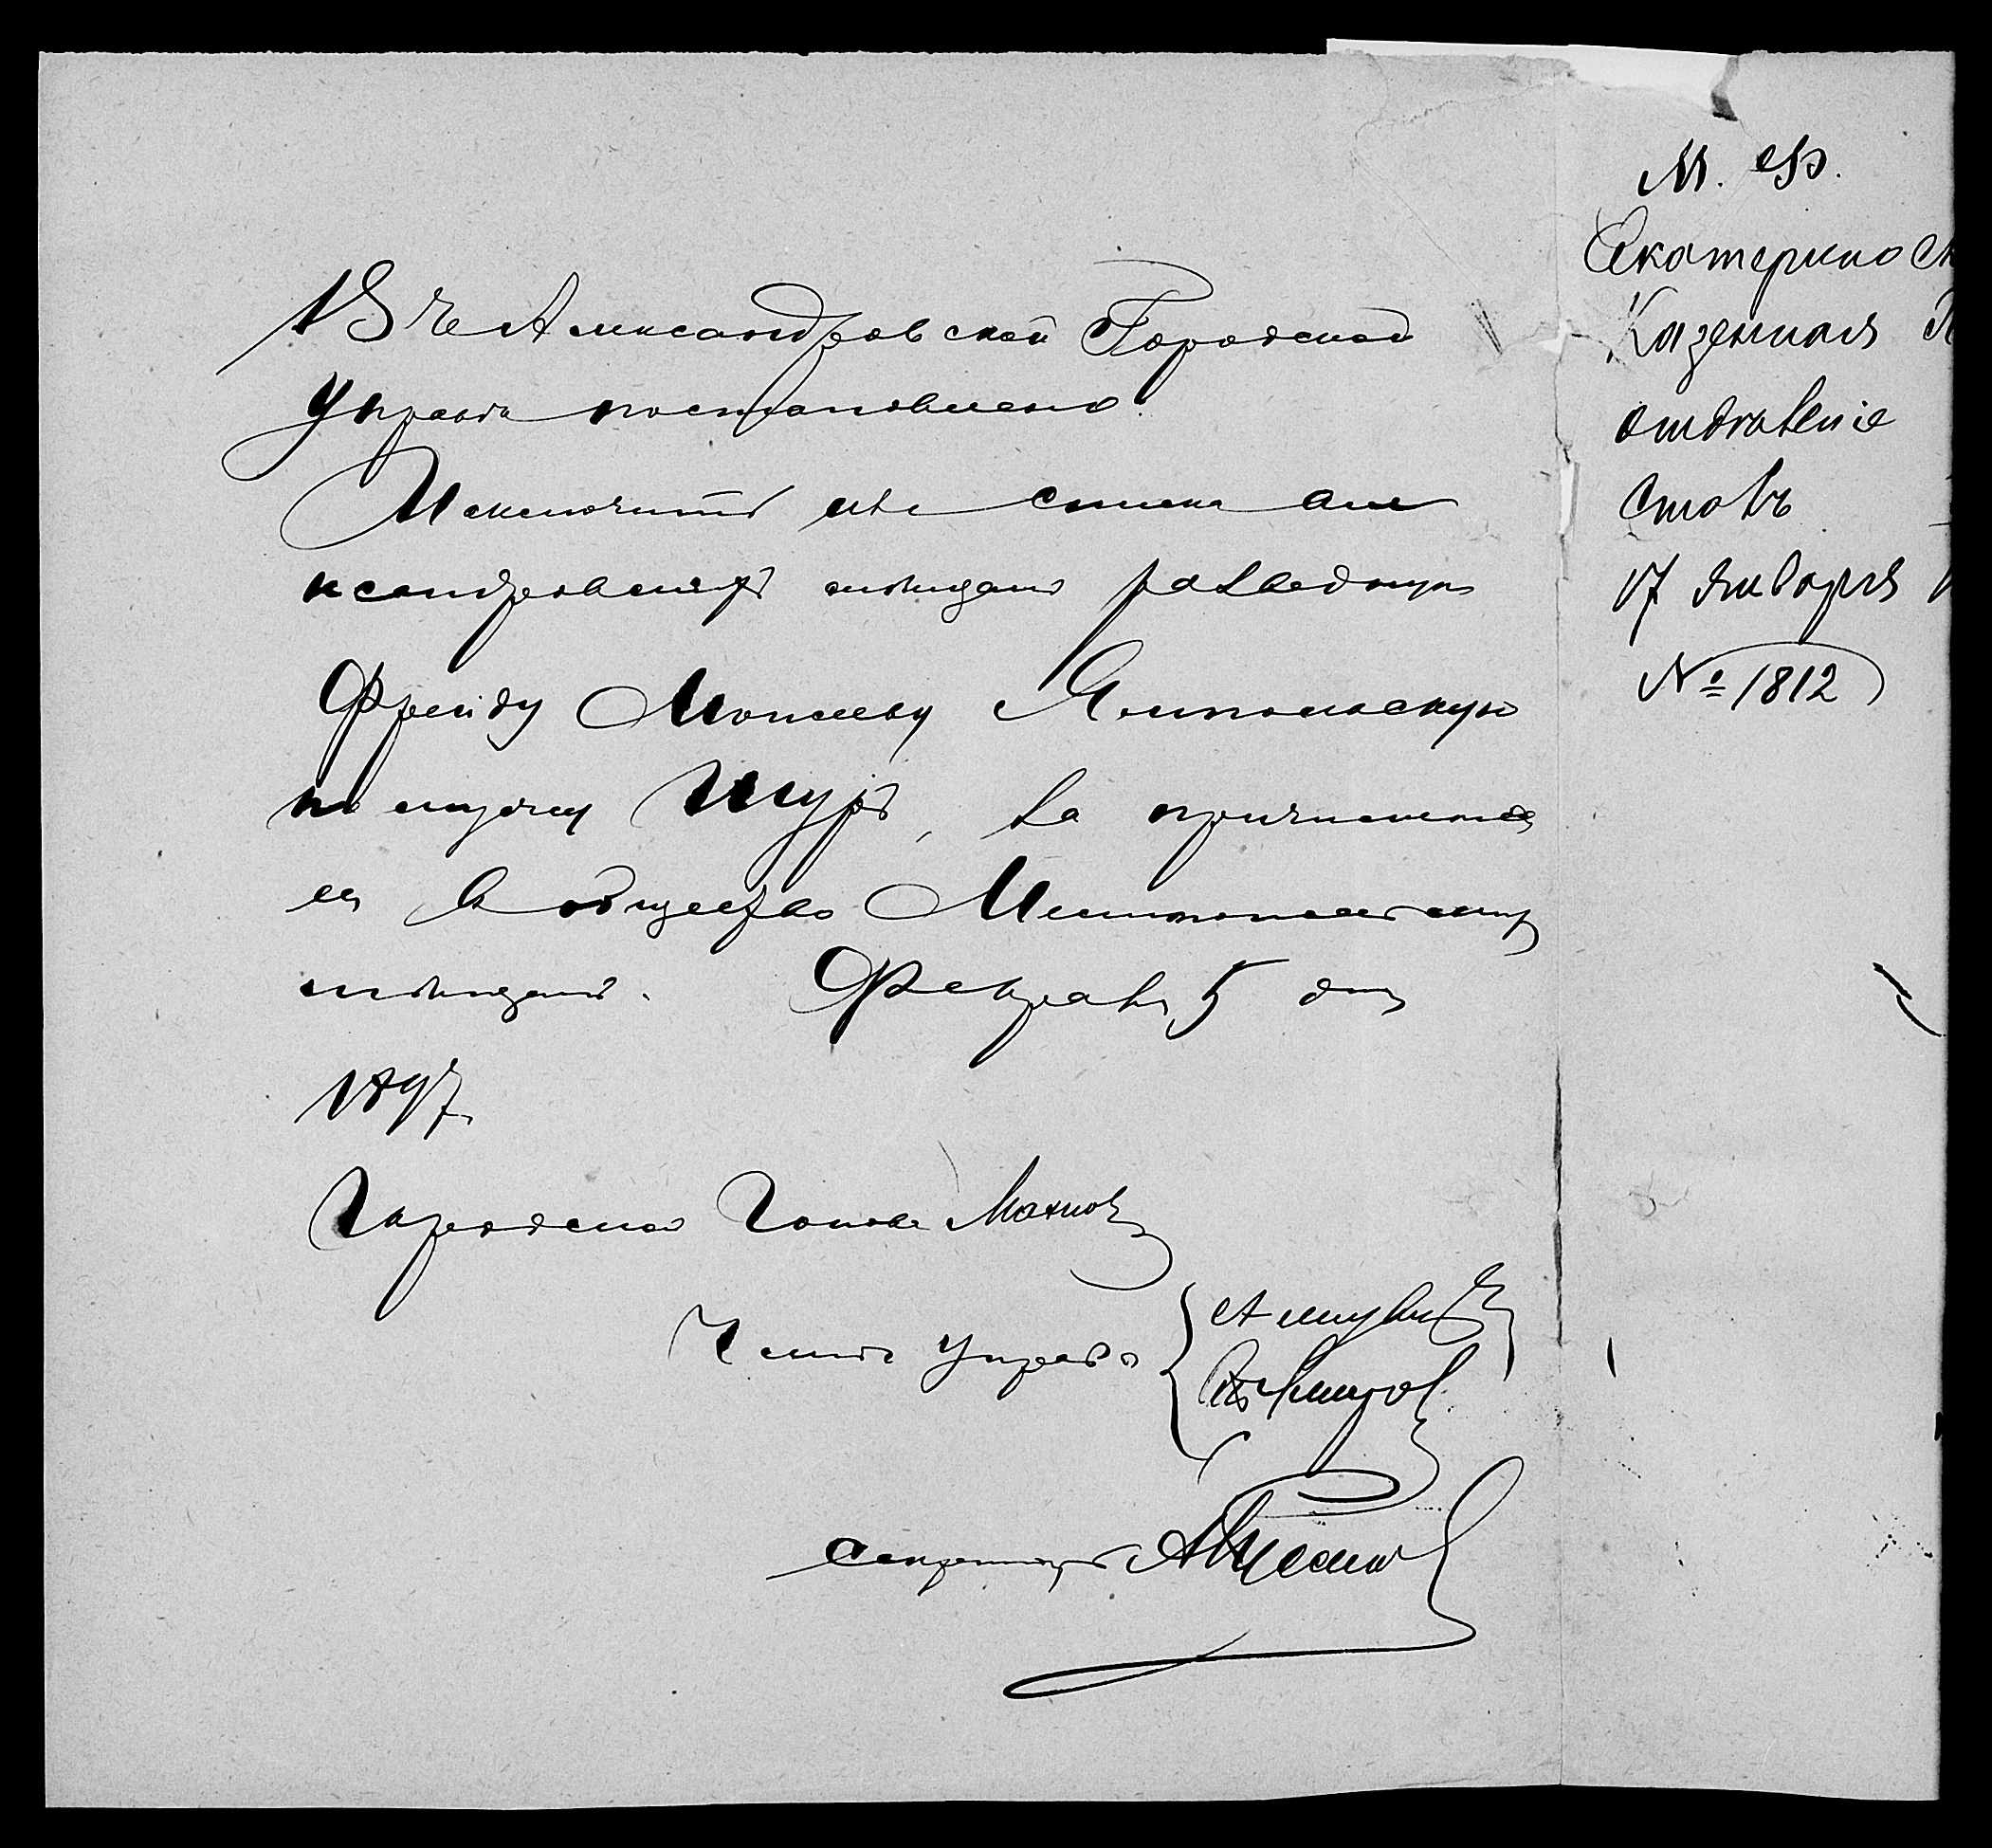 Въ Александровской Городской
Управѣ постановлено:
Исключить изъ списка Але
ксандровскихъ мѣщанъ разведеную
Фрейду Мошкову Ямпольскую
по мужу Шуръ, за причисленіе
ея въ общество Мелитопольскихъ
мѣщанъ. Февраля 5 дня
1897
Городской Голова Махно
Члены Управы
Секретарь
М. Ф.
Екатериносл
Казенная П
отдѣленіе
столъ
17 Января 1
№ 1812